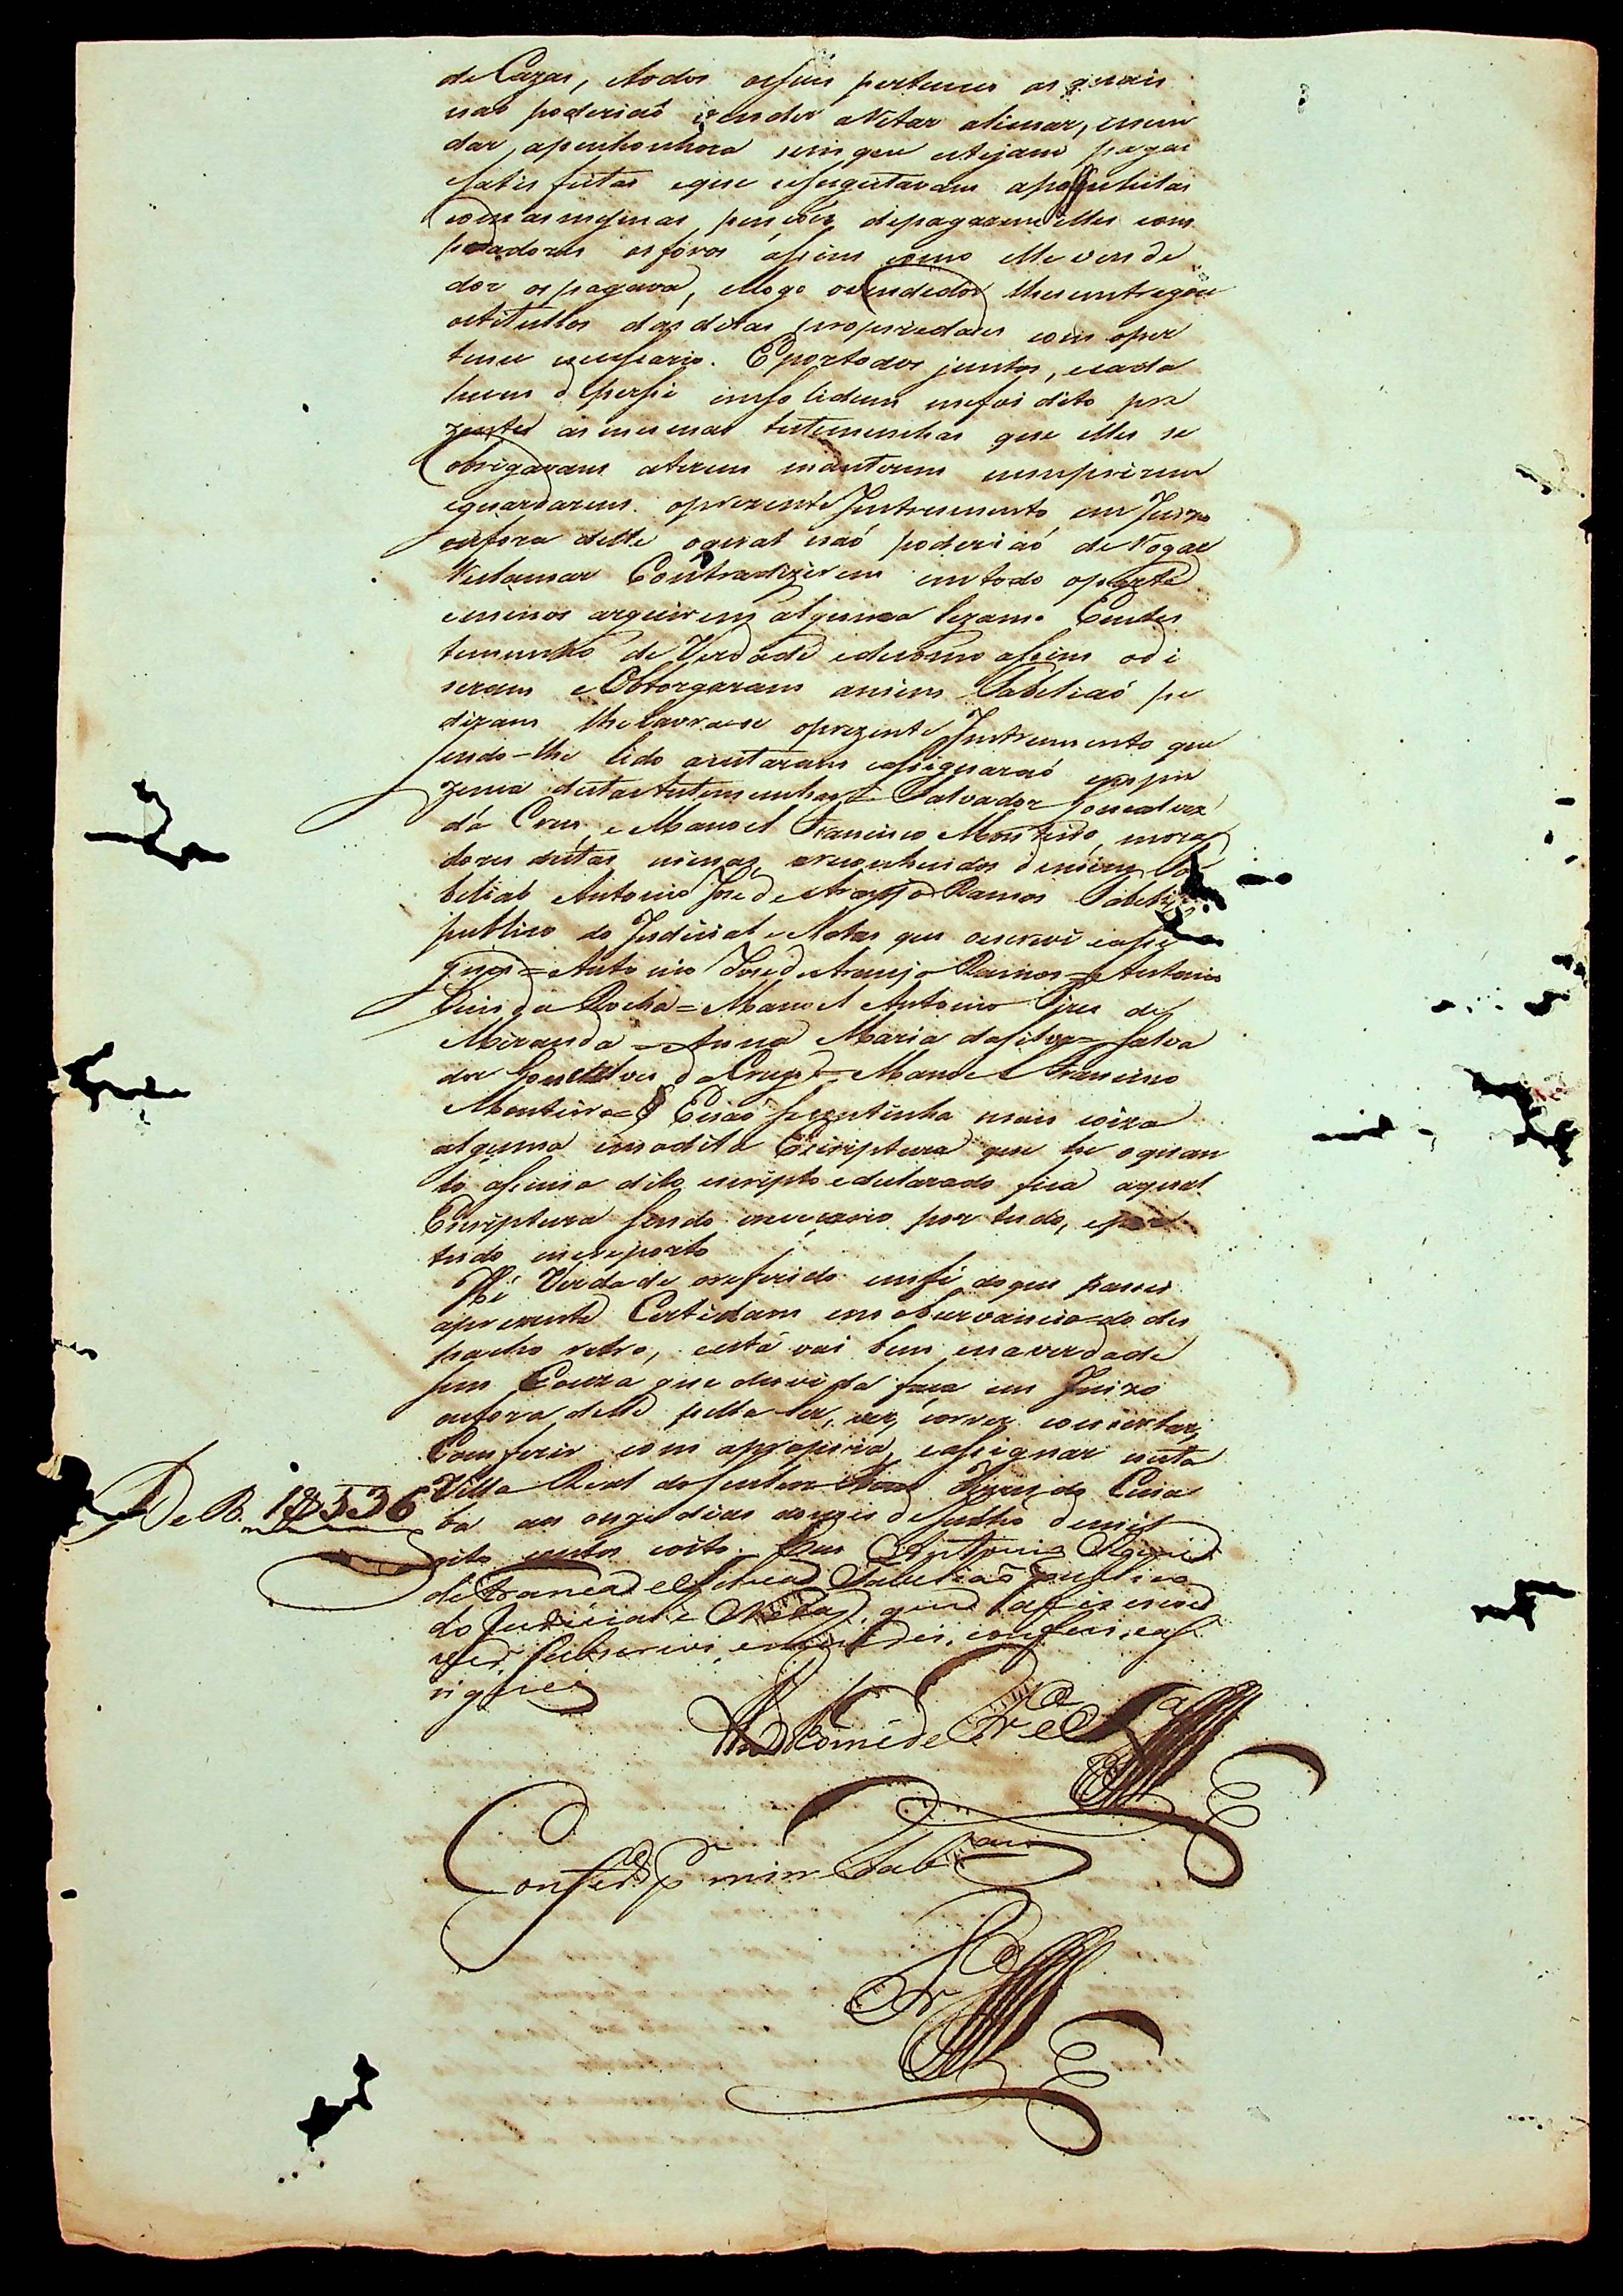 de Cazas, etodos osseus pertences as quais
naó poderiaó vender aVitar alienar,
dar, apenhonhora sem que estejam pagas
esatis feitas eque esugeitavam
com as mesmas penções depagarem elles com
pradores os fóros assim como elle vende
dor os pagava, elogo ovendedor lhes entregou
ostitullos das ditas propriedades com oper
tence necessario. Eportodos juntos, ecada
hum deperssi insolidum mefoi dito pre
zentes as mesmas testemunhas que elles se
obrigavam aterem manterem cumprirem
eguardarem oprezente Instrumento em Juizo
oufora delle oqual naó poderiaó deVogar
Reclamar Contradizerem emtodo oparte
emenos arguirem alguma lezam. Emtes
temunho de Verdade edecomo assim odi
seram eObtorgaram amim Tabeliaó pe
diram lhelavrace oprezente Instrumento que
sendo-lhe lido aceitaram eassignaraó empre
zença destastestemunhas Salvador Goncalvez
da Cruz, e Manoel Francisco Monteiro, mora
dores nestas minas, ereconhecidos demim Ta
beliaó Antonio Jose de Araujo Ramos Tabeliaó
publico do Judicial e Notas que oescrevi eassi
gnei = Antonio Jose de Araujo Ramos = Antonio
Luis da Rocha = Manoel Antonio Pires de
Miranda = Anna Maria dasilva = Salva
dor Goncalves da Cruz = Manoel Francisco
Monteiro = Enaó secontinha mais coiza
alguma emadita Escriptura que he oquan
to assima dito escripto edeclarado fica aqual
Escriptura sendo necessario por tudo, epor
tudo mereporto
Hé Verdade oreferido emfé doque passei
aprezente Certidam em observancia do des
pacho retro, eesta vai bem enaverdade
sem Couza que duvida faça em Juizo
oufora delle pella ler, ver, correr concertar,
Comferir com apropria, eassignar nesta
Villa Real do Senhor Bom Jezus do Cuia
ba aos onze dias domes de Julho demil
oito centos eoito. Eu Antonio
de França Tabeliaõ publico
do Judicial e Notas, que afiz escre
ver, sobscrevi, conferi, eas
signei
De B. 18536
Conferido p. mim Tab.am